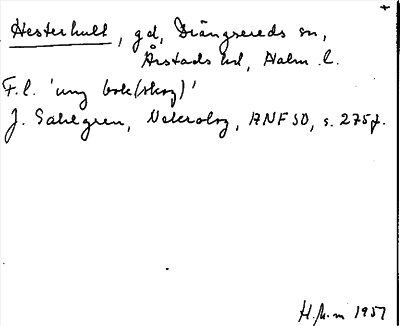 +
Hesterhult, gd, Drängsereds sn,
Årstads hd, Halm. l.
F.l. 'ung bok(skog)'
J. Sahlgren, Nekrolog, ANF 50, s. 275 f.
H. M-m 1957